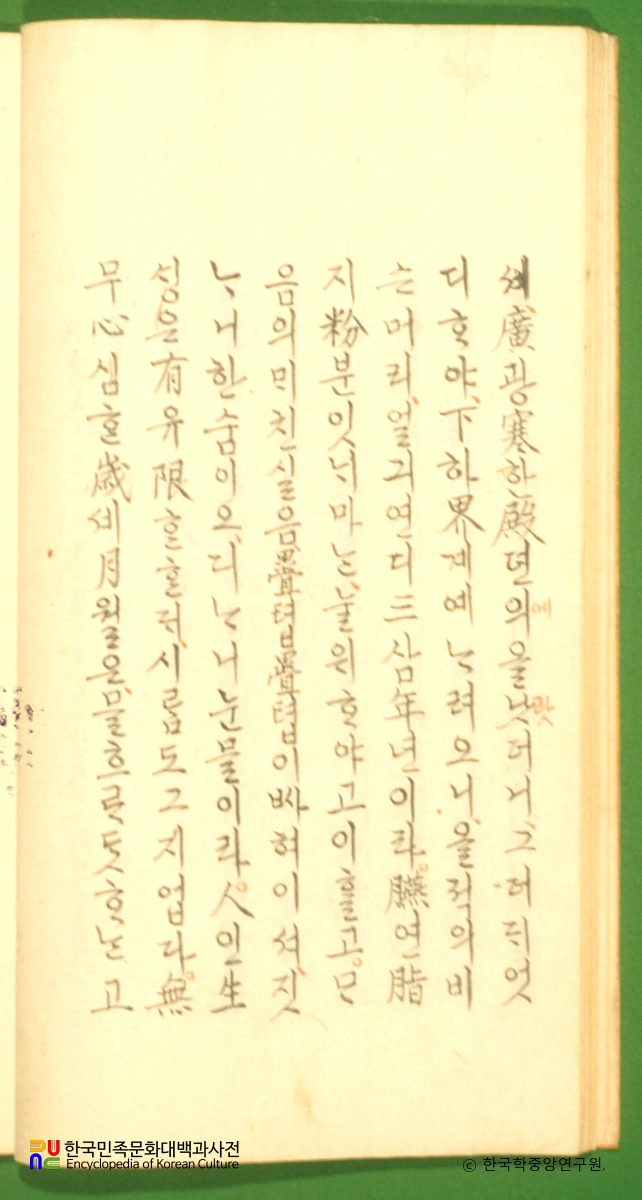 셔廣광寒한殿뎐의올낫더니그더듸엇
에
랏
디ᄒᆞ야下하界계예ᄂᆞ려오니올적의비
슨머리얼긔연디三삼年년이라。臙연脂
지粉분잇ᄂᆡ마ᄂᆞᆫ눌위ᄒᆞ야고이ᄒᆞᆯ고。ᄆᆞ
음의ᄆᆡ친실음疊텹疊텹이ᄡᅡ혀이셔짓
ᄂᆞ니한숨이오디ᄂᆞ니눈물이라。人인生
ᄉᆡᆼ은有유限ᄒᆞᆫᄒᆞᆫ저시ᄅᆞᆷ도그지업다。無
무心심ᄒᆞᆫ歲셰月월은믈흐ᄅᆞᆺᄃᆞᆺᄒᆞᄂᆞᆫ고
한국민족문화대백과사전
Encyclopedia of Korean Culture
ⓒ 한국학중앙연구원.